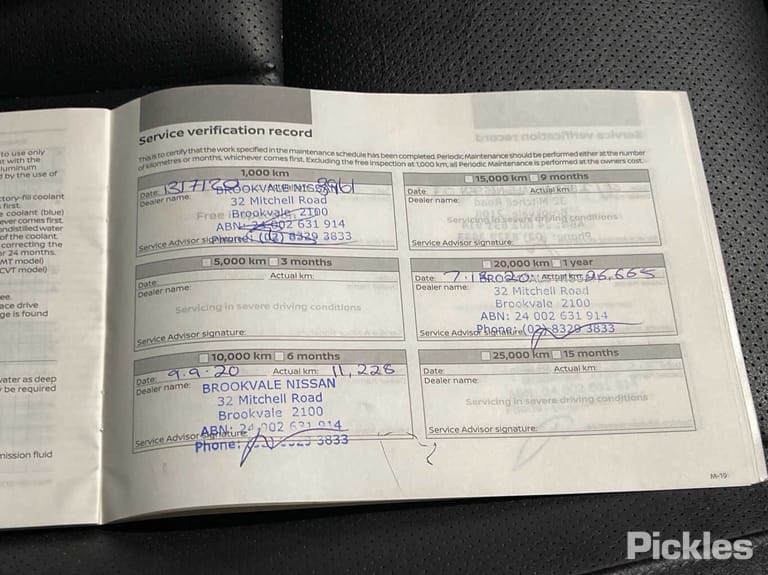 to use only
t with the
luminum
d by the use of
ctory-fill coolant
s first.
e coolant (blue)
ever comes first.
ndistilled water
of the coolant.
correcting the
r 24 months.
MT model)
CVT model)
ee.
ace drive
ge is found
water as deep
y be required
mission fluid
Service verification record
This is to certify that the work specified in the maintenance schedule has been completed. Periodic Maintenance should be performed either at the number
of kilometres or months, whichever comes first. Excluding the free inspection at 1,000 km, all Periodic Maintenance is performed at the owners cost.
1,000 km
Date: 13/7/20
Dealer name:
BROOKVALE NISSAN
32 Mitchell Road
Brookvale 2100
ABN: 24 002 631 914
Service Advisor signature:
Phone: (02) 8329 3833
5,000 km 3 months
Date: Actual km:
Dealer name:
Servicing in severe driving conditions
Service Advisor signature:
10,000 km 6 months
Date: 9.9.20 Actual km: 11,228
Dealer name:
BROOKVALE NISSAN
32 Mitchell Road
Brookvale 2100
ABN: 24 002 631 914
Service Advisor signature:
Phone: (02) 8329 3833
15,000 km 9 months
Date: Actual km:
Dealer name:
Servicing in severe driving conditions
Service Advisor signature:
20,000 km 1 year
Date: Actual km: 26,665
Dealer name:
32 Mitchell Road
Brookvale 2100
ABN: 24 002 631 914
Phone: (02) 8329 3833
Service Advisor signature:
25,000 km 15 months
Date: Actual km:
Dealer name:
Servicing in severe driving conditions
Service Advisor signature:
M-19
Pickles